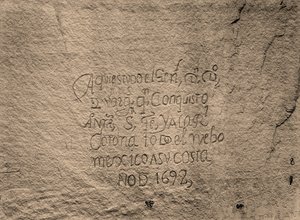 Aqui estubo el Genl Dn Do
de Vargs qn Conquisto
a nra S Fe y a la Rl
Corona todo el nuebo
mexico a su costa
Año D 1692